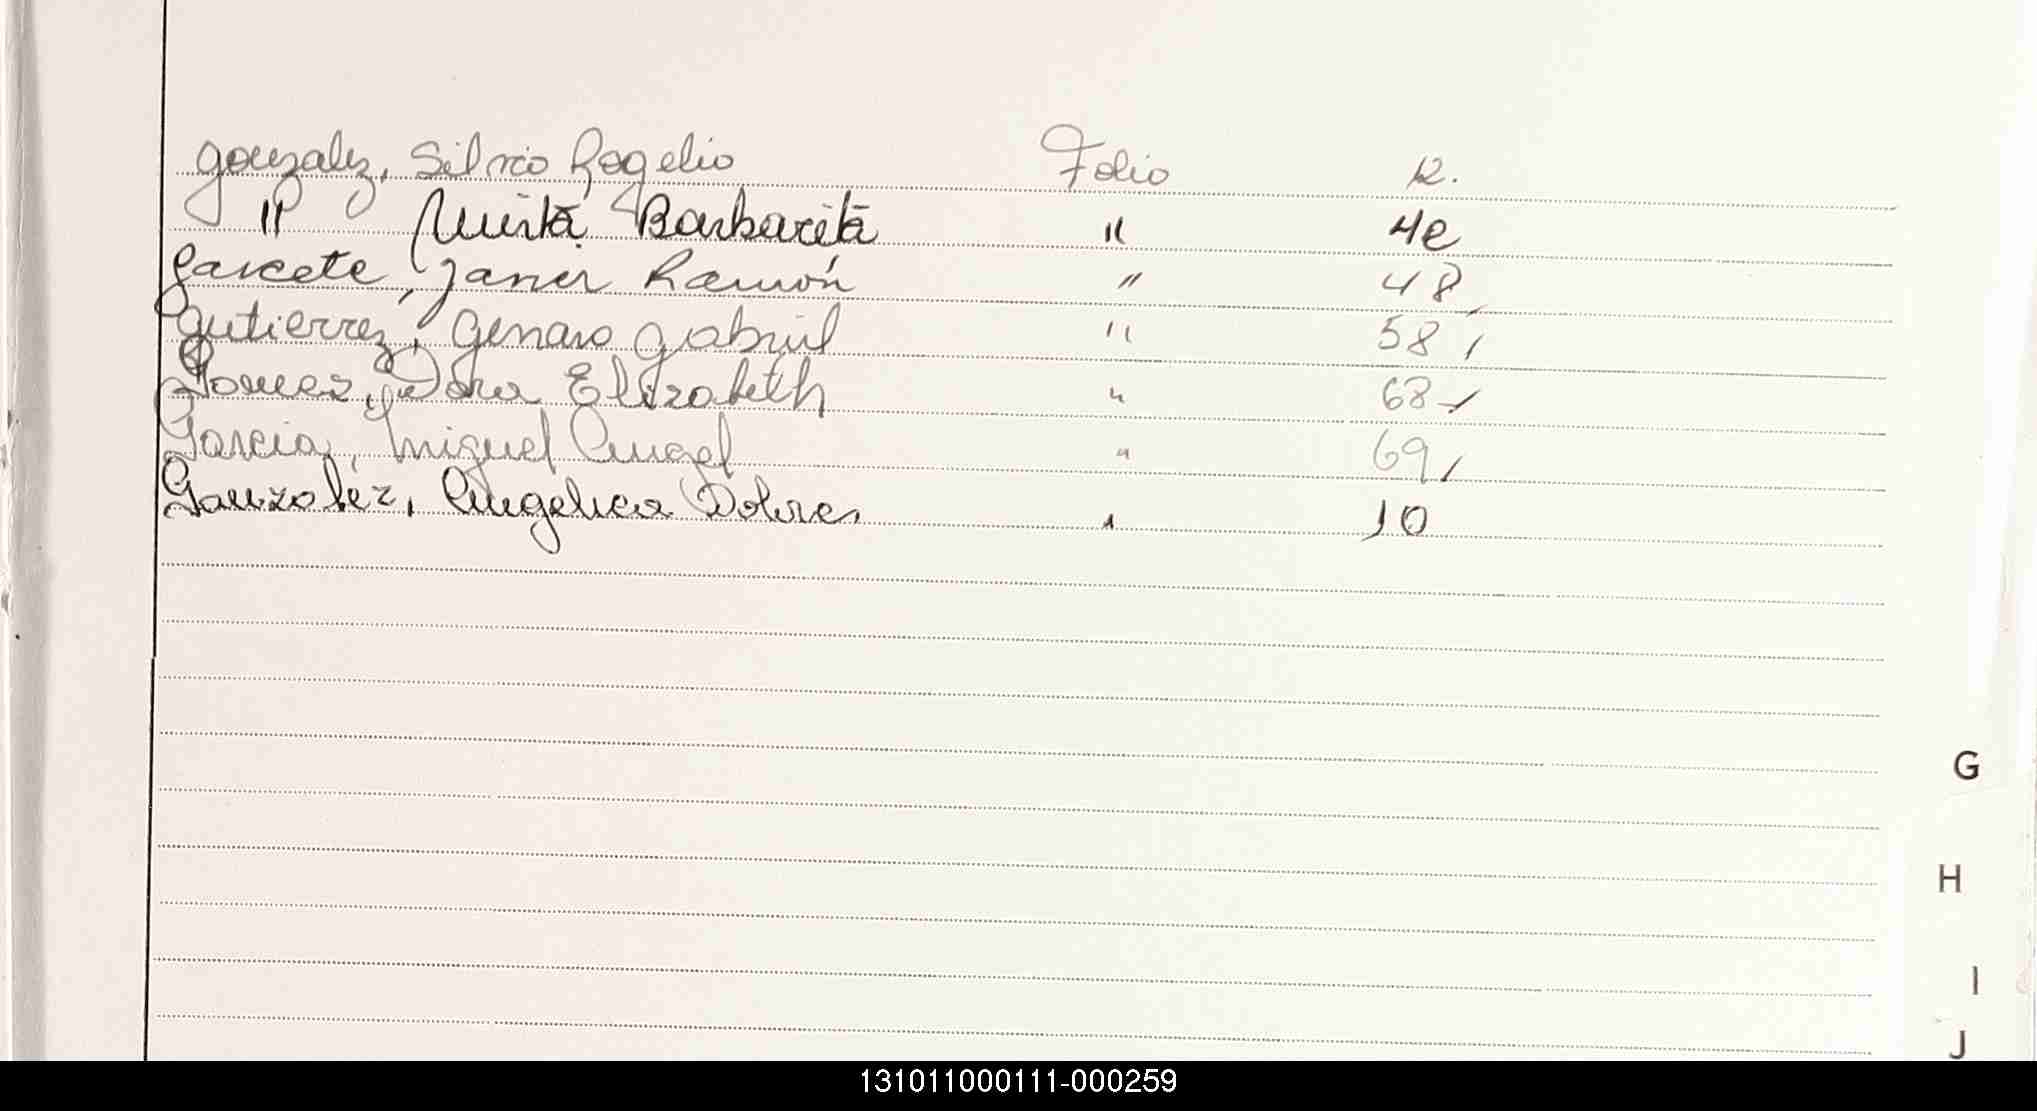 Gonzalez, Silvio Rogelio Folio 12.
" Mirta Barbarita " 42
Garcete, Javier Ramón " 48,
Gutierrez, Genaro Gabriel " 58,
Gomez, Dora Elizabeth " 68,
Garcia, Miguel Angel " 69,
Gonzalez, Angelica 10
G
H
I
J
131011000111-000259